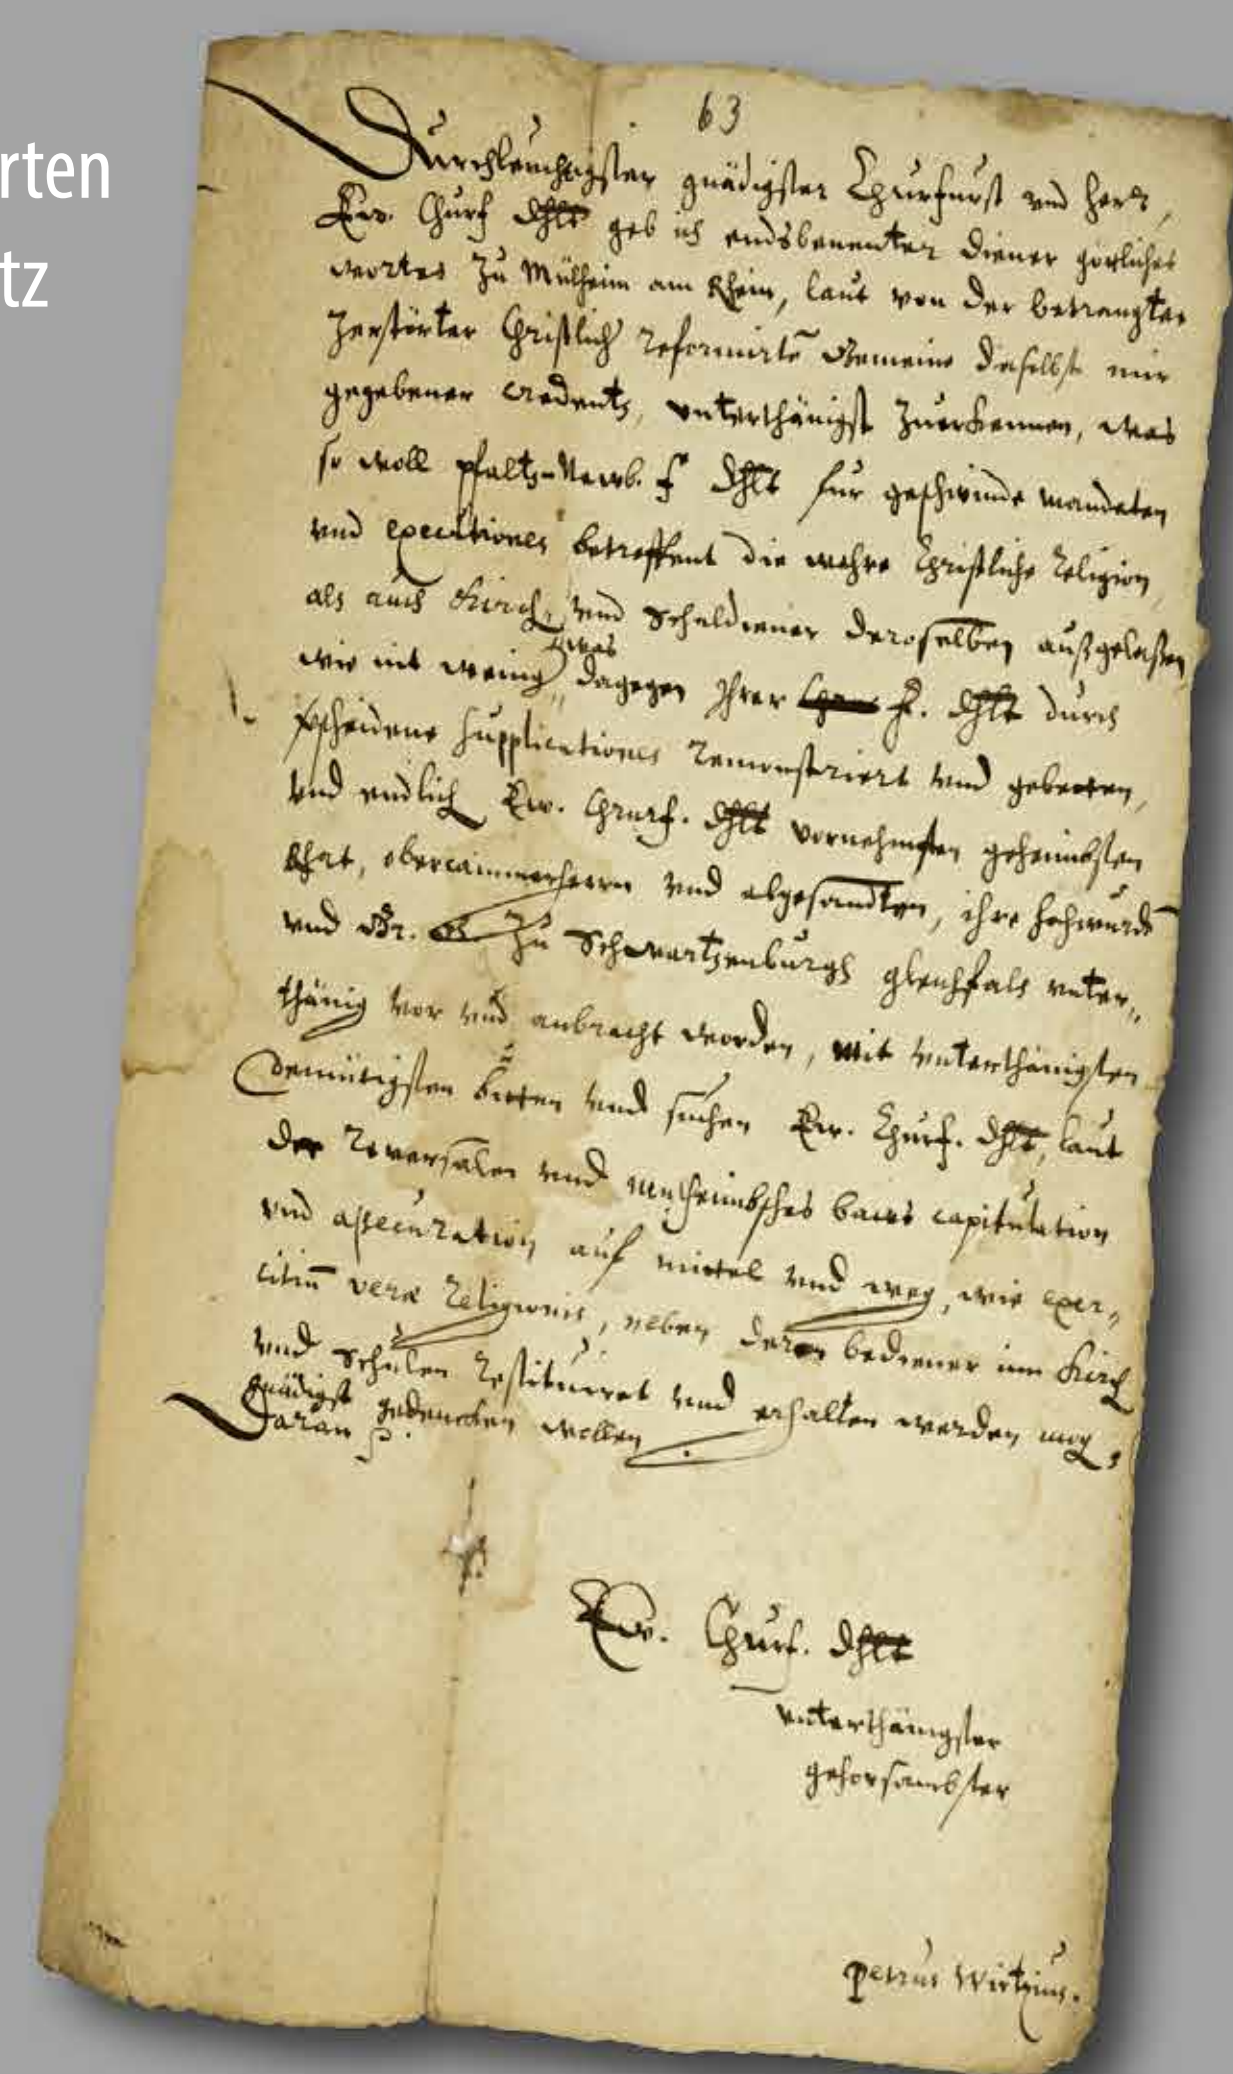 rten
tz
63
Durchleuchtigster gnädigster Churfurst und Herr,
Ew. Churf. Dhlt geb ich endsbenenter Diener götliches
wortes zu Mülheim am Rhein, laut von der betrangter
zerstörter Christlich reformirte Gemeine daselbst mir
gegebener credentz, unterthänigst zuerkennen, was
so woll pfaltz-Newb. f. Dhlt für geschwinde mandaten
und executiones betreffent die wahre Christliche Religion,
als auch Kirch und Schuldiener deroselben außgelaßen,
was
wie nit wenig, dagegen Ihrer f. Dhlt durch
supplicationes remonstriert und gebetten,
und endlich Ew. Churf. Dhlt vornehmsten geheimbsten
Rhat, obercammerherrn und abgesandten, ihre hochwurd
und Gr. zu Schwartzenburgh gleichfals unter,,
thänig vor und anbracht worden, mit unterthänigsten
demütigsten bitten und suchen Ew. Churf. Dhlt, laut
der Reversalen und baws capitulation
und assecuration auf mittel und weg, wie exer,,
citiu veræ Religionis, neben deren bediener inn Kirch
und Schulen restituiret und erhalten werden mog,
gnädigst gedencken wollen
Daran
Ew. Churf. Dhlt
unterthänigster
gehorsambster
Petrus Wirtzius.